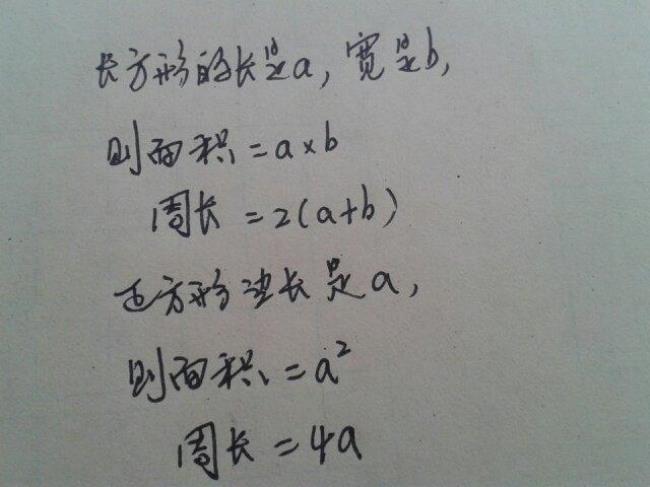 长方形的长是a,宽是b,
则面积=a×b
周长=2(a+b)
正方形边长是a,
则面积=a²
周长=4a